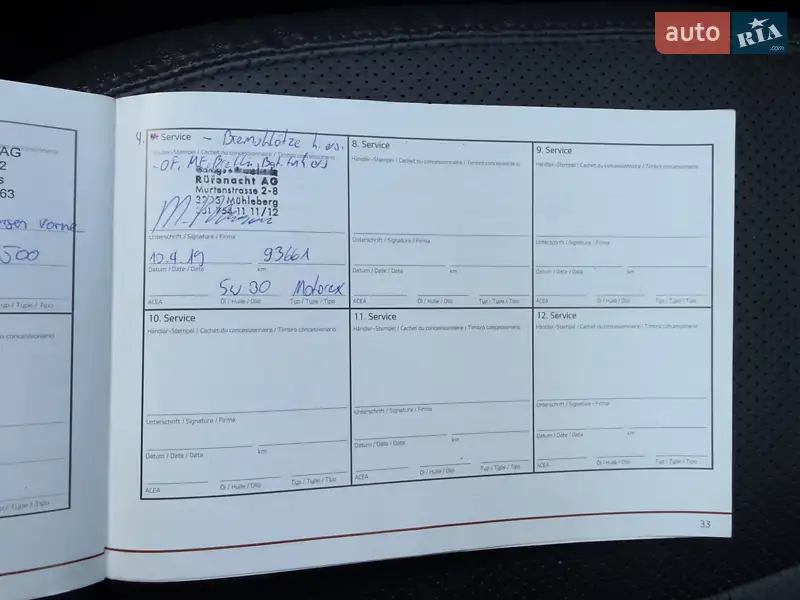 auto RIA .com
AG
2
s
63
vorne
500
Typ / Type / Tipo
du concessionnaire
Typ / Type / Tipo
4. Service - Bremsklötze h. ers.
Händler-Stempel / Cachet du concessionnaire / Timbro concessionario
- OF, MF,
Rüfenacht AG
Murtenstrasse 2-8
Mühleberg
031 754 11 11/12
Unterschrift / Signature / Firma
10.4.19 93661
Datum / Date / Data km
5W30 Motorex
ACEA Öl / Huile / Olio Typ / Type / Tipo
8. Service
Händler-Stempel / Cachet du concessionnaire / Timbro concessionario
Unterschrift / Signature / Firma
Datum / Date / Data km
ACEA Öl / Huile / Olio Typ / Type / Tipo
9. Service
Händler-Stempel / Cachet du concessionnaire / Timbro concessionario
Unterschrift / Signature / Firma
Datum / Date / Data km
ACEA Öl / Huile / Olio Typ / Type / Tipo
10. Service
Händler-Stempel / Cachet du concessionnaire / Timbro concessionario
Unterschrift / Signature / Firma
Datum / Date / Data km
ACEA Öl / Huile / Olio Typ / Type / Tipo
11. Service
Händler-Stempel / Cachet du concessionnaire / Timbro concessionario
Unterschrift / Signature / Firma
Datum / Date / Data km
ACEA Öl / Huile / Olio Typ / Type / Tipo
12. Service
Händler-Stempel / Cachet du concessionnaire / Timbro concessionario
Unterschrift / Signature / Firma
Datum / Date / Data km
ACEA Öl / Huile / Olio Typ / Type / Tipo
33